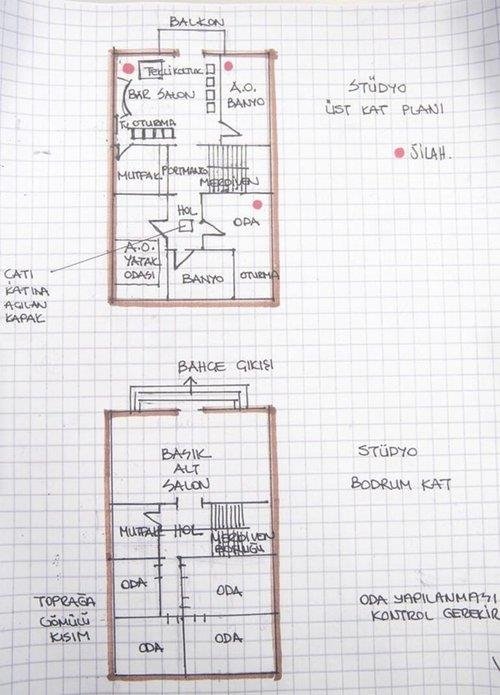 BALKON
TEKLİ KOLTUK
BAR SALON
A.O.
BANYO
TV OTURMA
MUTFAK
PORTMANTO
MERDİVEN
HOL
ODA
A.O.
YATAK
ODASI
BANYO
OTURMA
ÇATI
KATINA
AÇILAN
KAPAK
STÜDYO
ÜST KAT PLANI
SİLAH.
BAHÇE ÇIKIŞI
BASIK
ALT
SALON
MUTFAK
HOL
MERDİVEN
BOŞLUĞU
ODA
ODA
ODA
ODA
TOPRAĞA
GÖMÜLÜ
KISIM
STÜDYO
BODRUM KAT
ODA YAPILANMASI
KONTROL GEREKİR